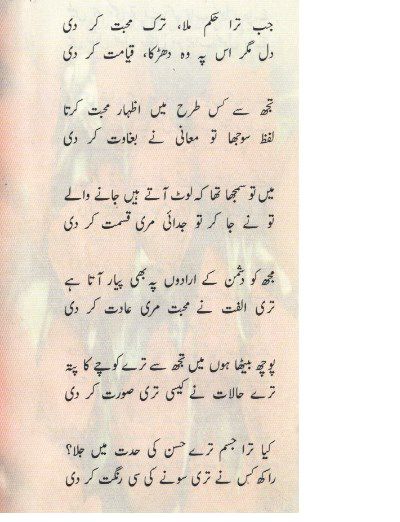 جب ترا حکم ملا، ترک محبت کر دی
دل مگر اس پہ وہ دھڑکا، قیامت کر دی
تجھ سے کس طرح میں اظہار محبت کرتا
لفظ سوجھا تو معانی نے بغاوت کر دی
میں تو سمجھا تھا کہ لوٹ آتے ہیں جانے والے
تو نے جا کر تو جدائی مری قسمت کر دی
مجھ کو دشمن کے ارادوں پہ بھی پیار آتا ہے
تری الفت نے محبت مری عادت کر دی
پوچھ بیٹھا ہوں میں تجھ سے ترے کوچے کا پتہ
ترے حالات نے کیسی تری صورت کر دی
کیا ترا جسم ترے حسن کی حدت میں جلا؟
راکھ کس نے تری سونے کی سی رنگت کر دی